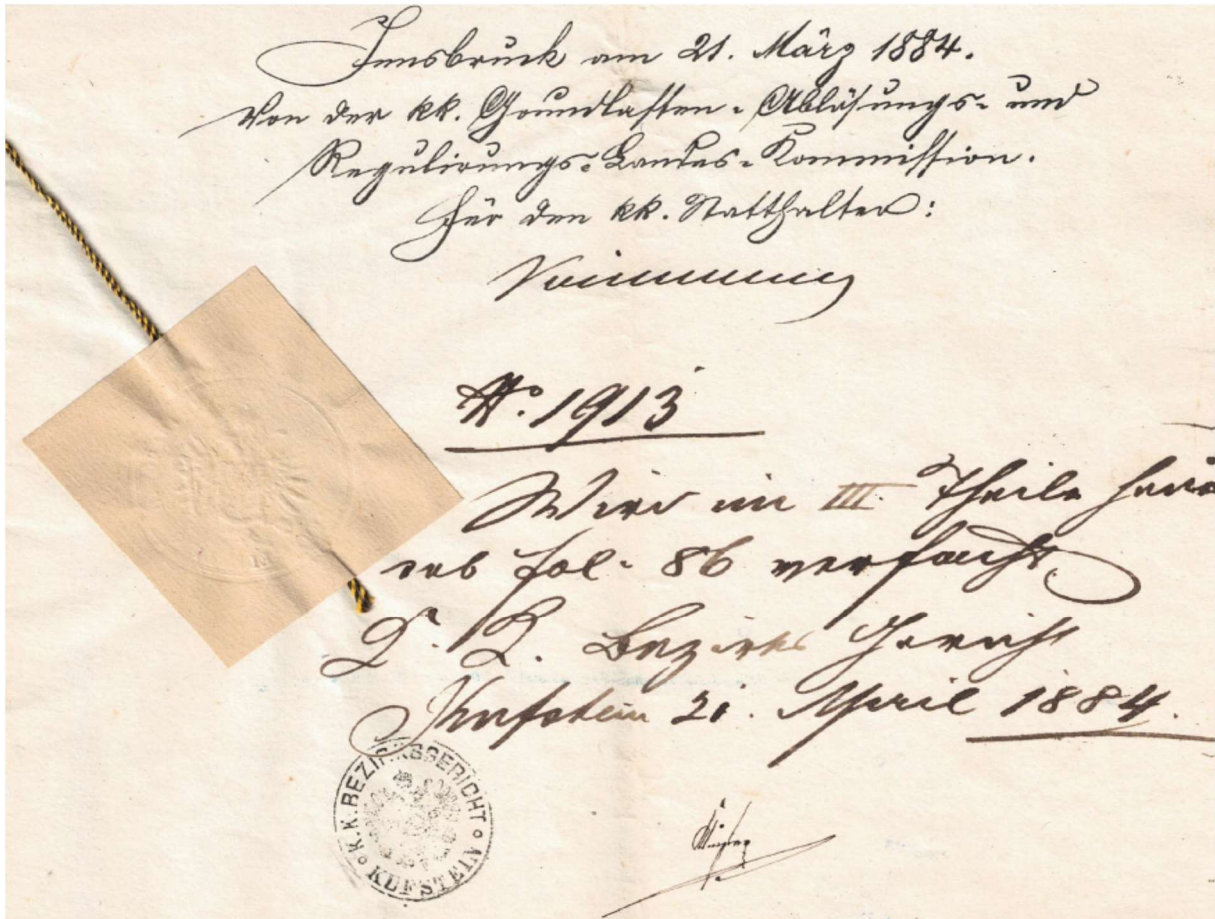 Innsbruck am 21. März 1884.
Von der kk. Grundlasten-Ablösungs- und
Regulirungs-Landes-Kommission.
Für den kk. Statthalter:
No. 1913
Wird im III. Theile
das fol. 86 verfacht
K. K. Bezirks Gericht
Kufstein 21. April 1884.
K.K. BEZIRKSGERICHT KUFSTEIN